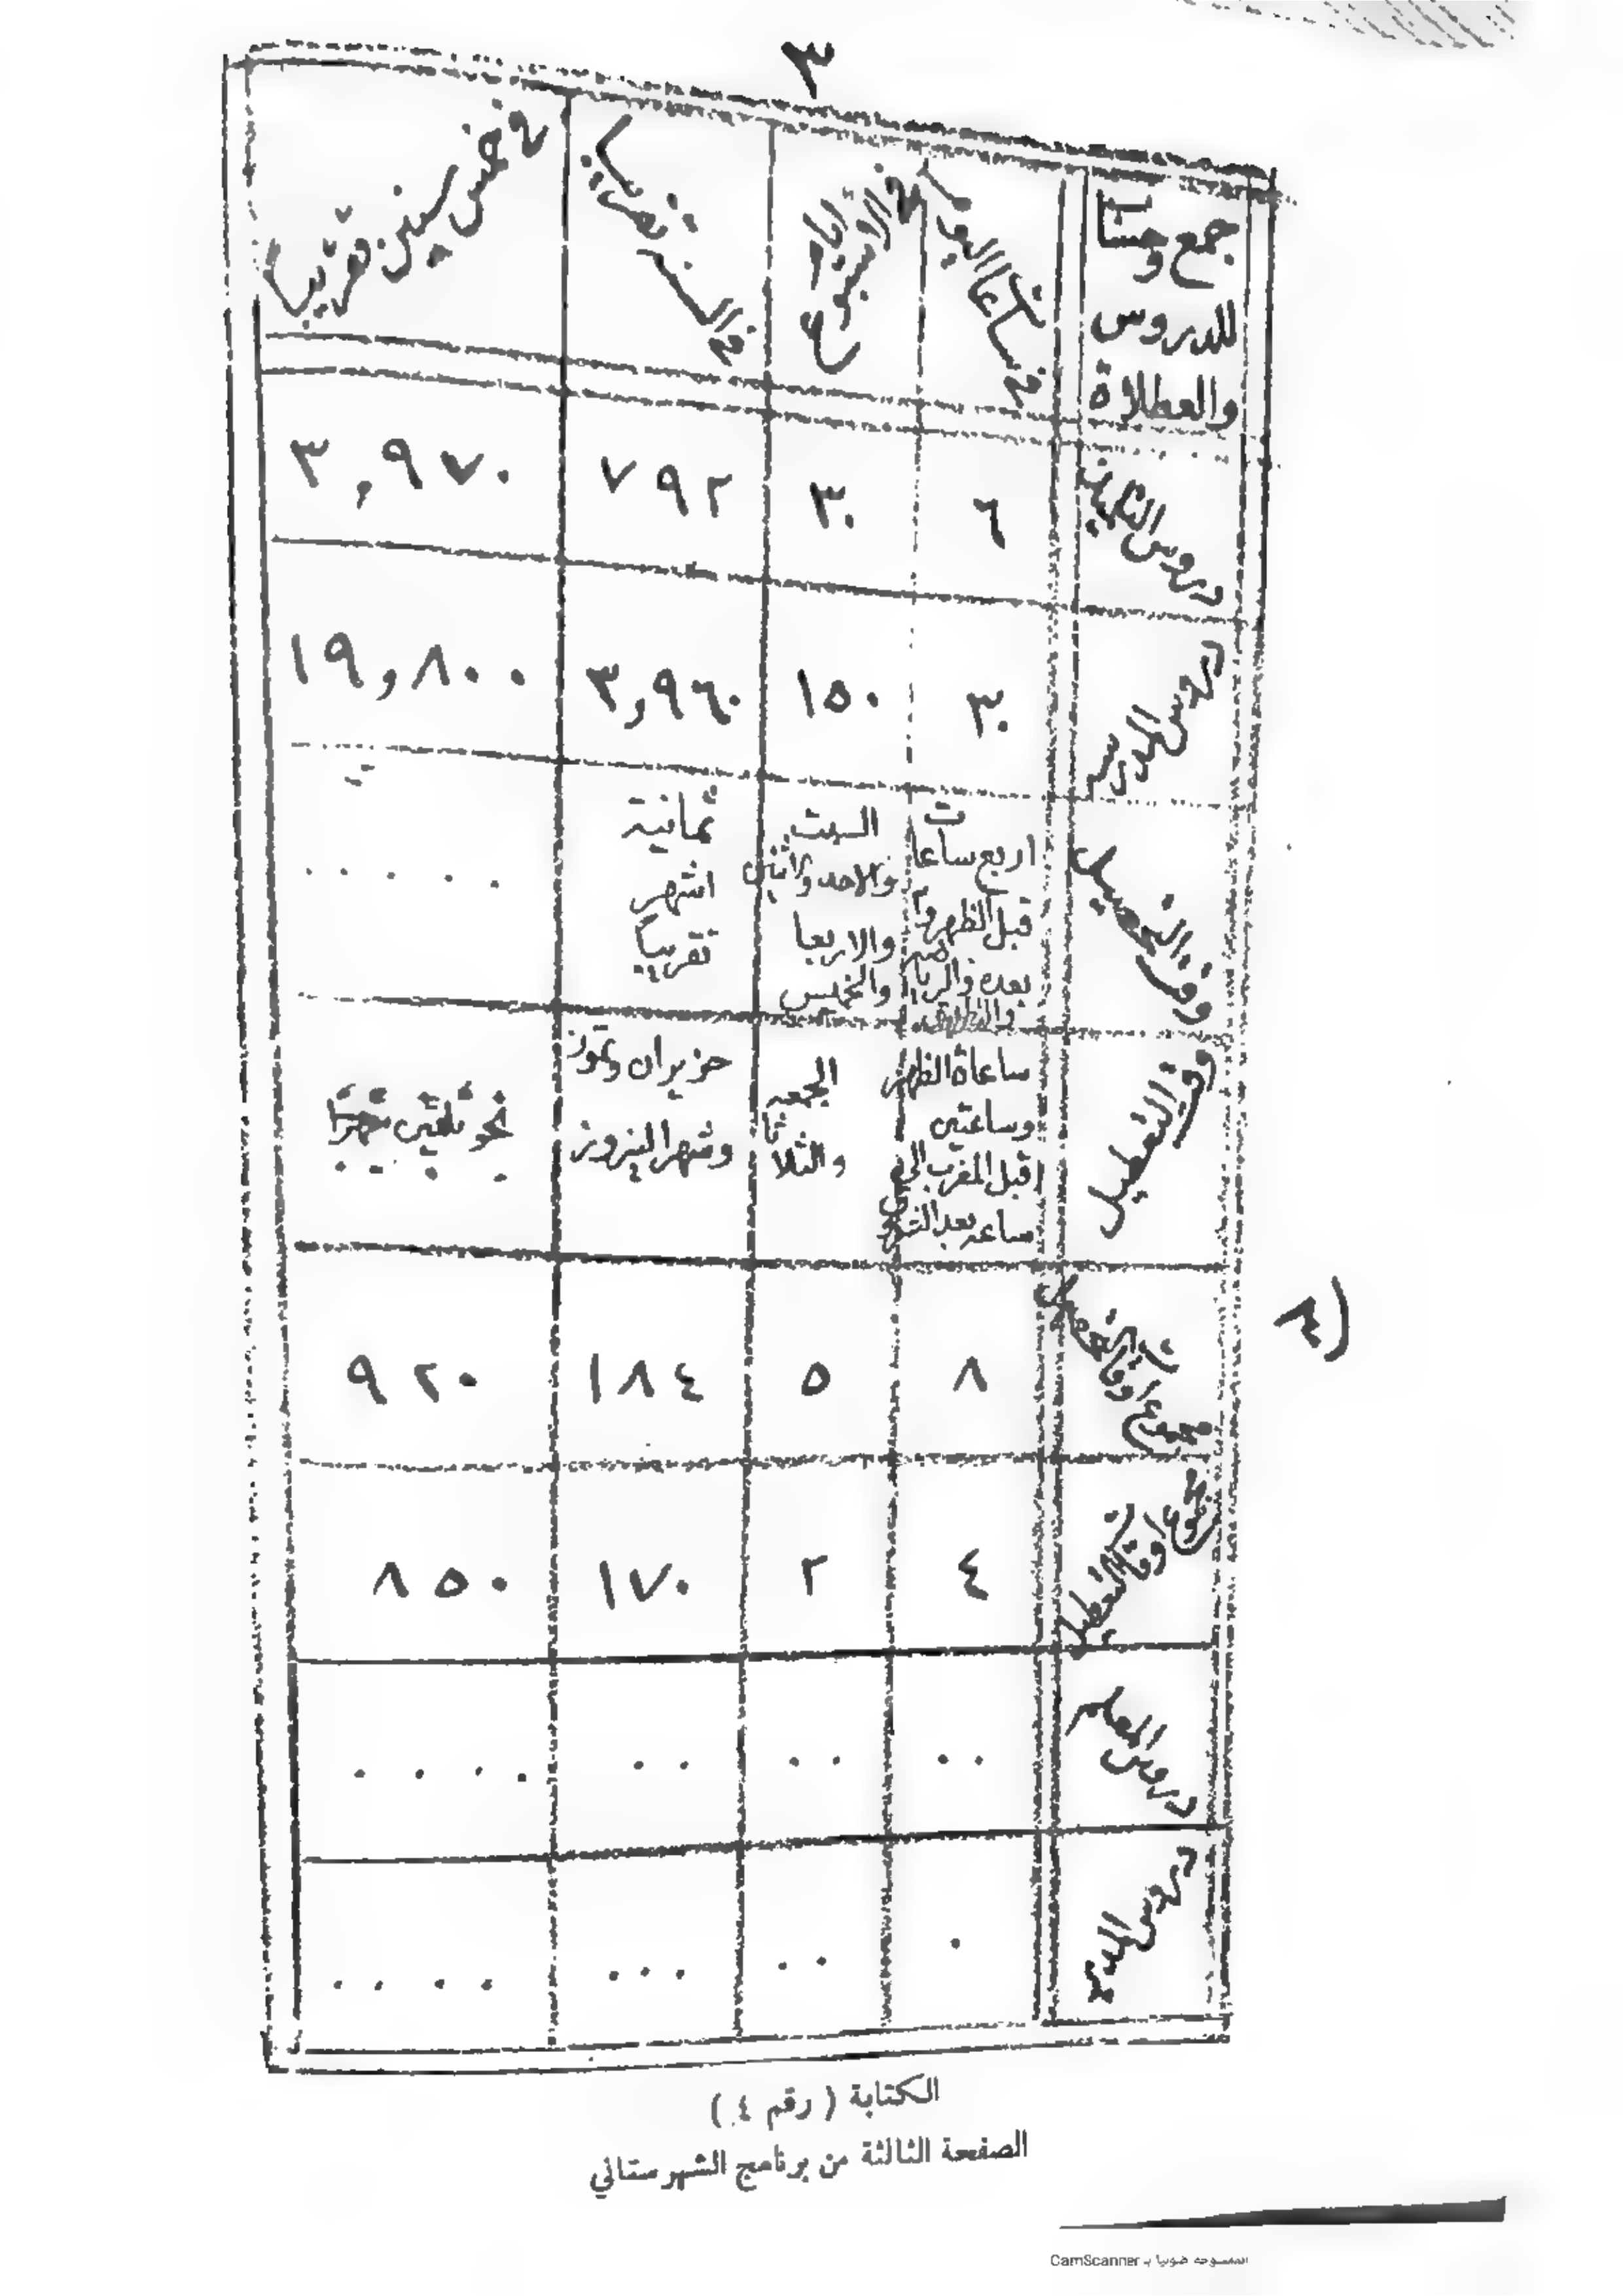 ٣
جمع وحسنا
للدروس
والعطلاة
في ساعات اليوم
في أيام الأسبوع
في السنة تقريبا
في خمس سنين تقريبا
دروس التلامية
٦
٣٠
٧٩٢
٣,٩٧٠
دروس المدرسة
٣٠
١٥٠
٣,٩٦٠
١٩,٨٠٠
وقت التحصيل
اربع ساعات
قبل الظهر و٤
بعده
السبت
والاحد والاثنين
والاربعا
والخميس
ثمانية
اشهر
تقريبا
. . . . .
وقت التعطيل
ساعاة الظهر
وساعتين
قبل المغرب الى
ساعه بعد
الجمعه
والثلاثا
حزيران وتموز
وشهر النيروز
نحو ثلثين شهرًا
مجموع اوقات التحصيل
٨
٥
١٨٤
٩٢٠
مجموع اوقات التعطيل
٤
٢
١٧٠
٨٥٠
دروس المعلم
. .
. .
. .
. . . .
دروس المدير
.
. .
. . .
. . . .
٣)
الكتابة ( رقم ٤ )
الصفحة الثالثة من برنامج الشهرستاني
الممسوحة ضوئيا بـ CamScanner